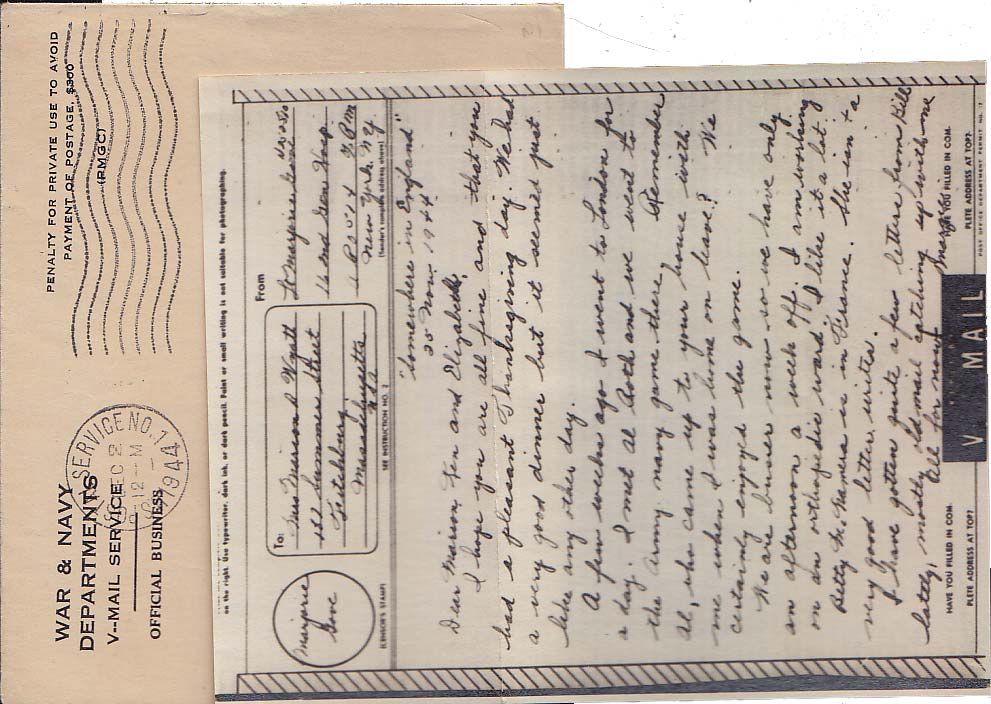 WAR & NAVY
DEPARTMENTS
V-MAIL SERVICE
OFFICIAL BUSINESS
PENALTY FOR PRIVATE USE TO AVOID
PAYMENT OF POSTAGE, $300
(PMGC)
SERVICE NO. 1
DEC 2
12-M
1944
on the right. Use typewriter, dark ink, or dark pencil. Faint or small writing is not suitable for photographing.
Marjorie
Gove
(CENSOR'S STAMP)
To:
Miss Marion D Wyatt
152 Summer Street
Fitchburg,
Massachusetts
USA
SEE INSTRUCTION NO. 2
From
Lt Marjorie Gove
16 Gen Hosp
APO 4 % P.M
New York, N Y
(Sender's complete address above)
"Somewhere in England"
25 Nov 1944
Dear Marion, Len and Elizabeth,
I hope you are all fine and that you
had a pleasant Thanksgiving day. We had
a very good dinner but it seemed just
like any other day.
A few weeks ago I went to London for
a day. I met Al Both and we went to
the army navy game there. Remember
Al, who came up to your house with
me when I was home on leave? We
certainly enjoyed the game.
We are busier now so we have only
an afternoon a week off. I am working
on an orthopedic ward. I like it a lot.
Betty McNamera is in France. She isn't a
very good letter writer.
I have gotten quite a few letters from Bill
lately, mostly old mail catching up with me
All for now
Marjorie
HAVE YOU FILLED IN COM-
PLETE ADDRESS AT TOP?
V · · · MAIL
HAVE YOU FILLED IN COM-
PLETE ADDRESS AT TOP?
POST OFFICE DEPARTMENT PERMIT NO. 17